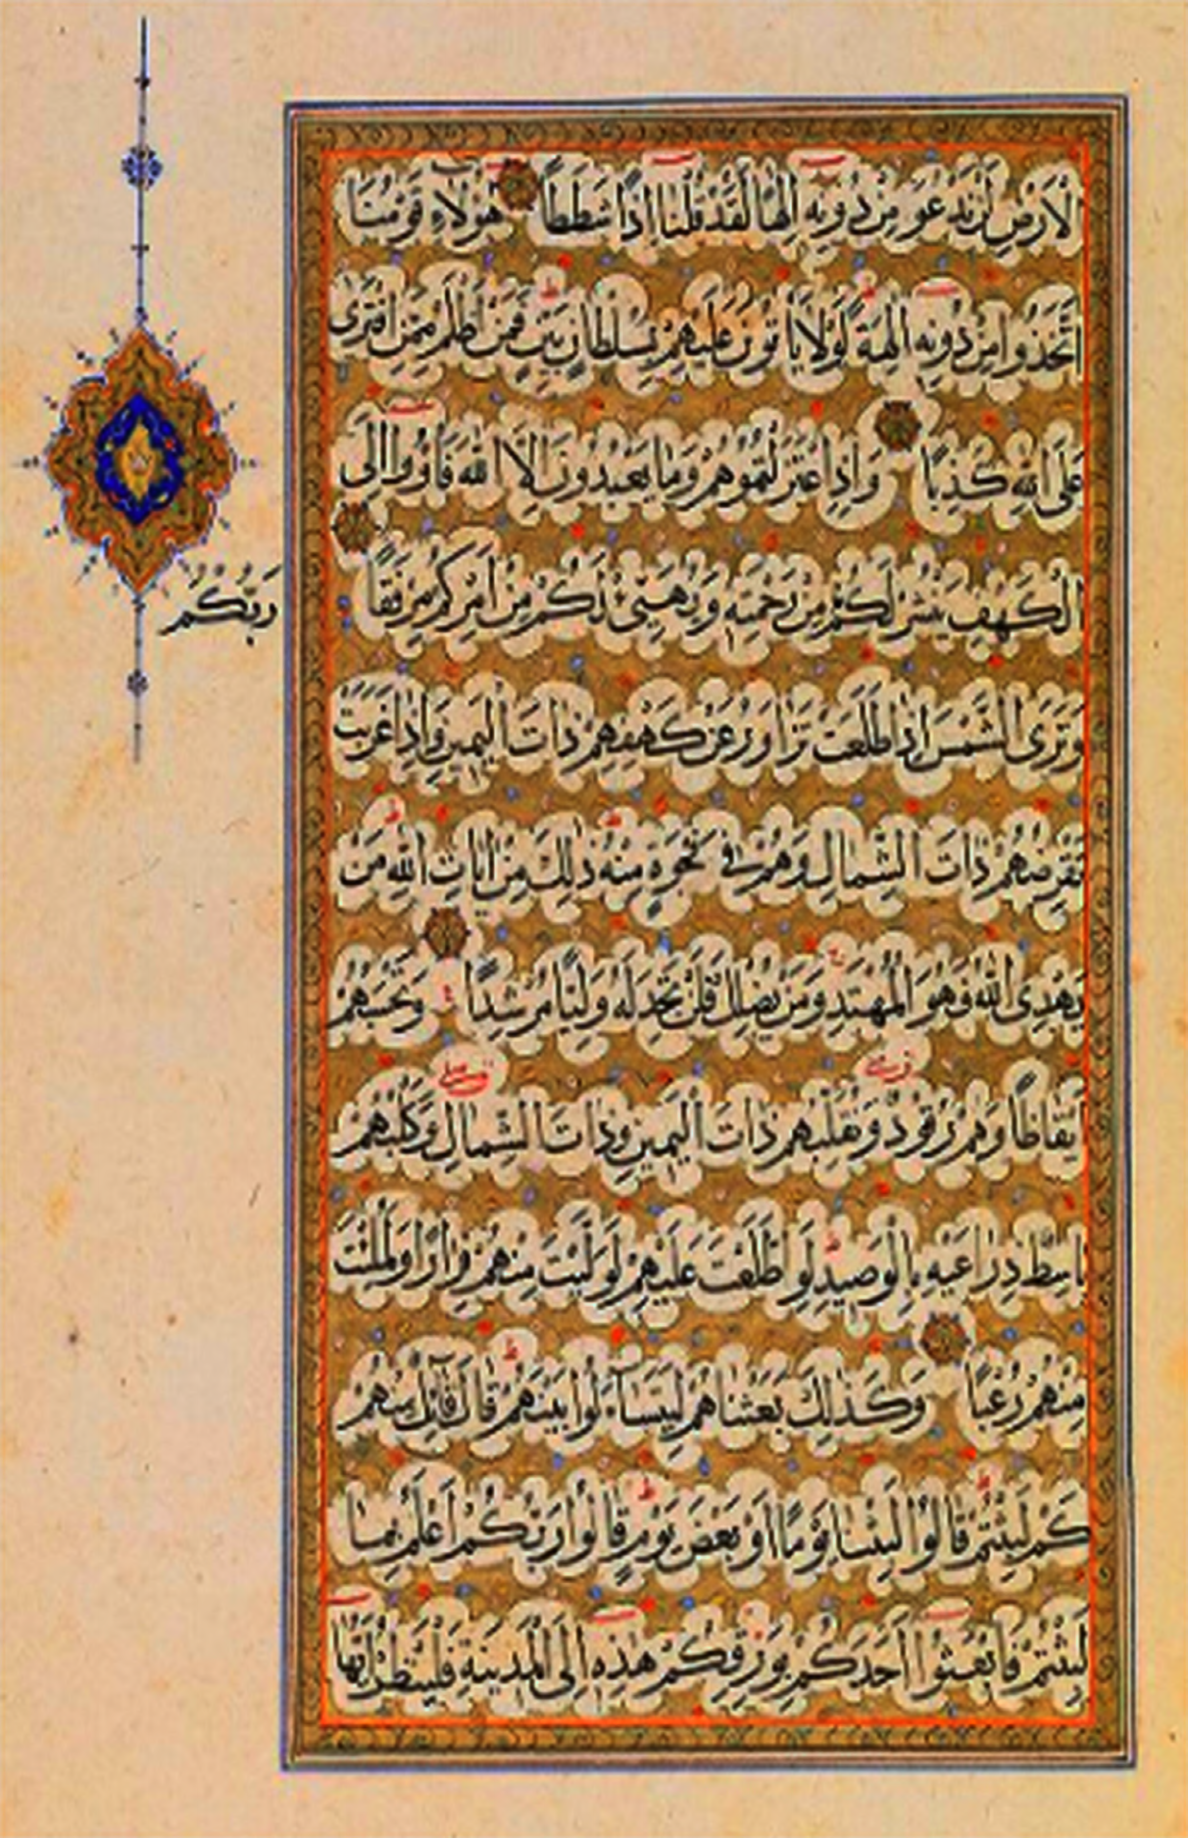 الْاَرْضِ لَنْ نَدْعُوَ مِنْ دُونِهِ اِلٰهًا لَقَدْ قُلْنَا اِذًا شَطَطًا هٰؤُلَاءِ قَوْمُنَا
اتَّخَذُوا مِنْ دُونِهِ اٰلِهَةً لَوْلَا يَاْتُونَ عَلَيْهِمْ بِسُلْطَانٍ بَيِّنٍ فَمَنْ اَظْلَمُ مِمَّنِ افْتَرٰى
عَلَى اللهِ كَذِبًا وَاِذِ اعْتَزَلْتُمُوهُمْ وَمَا يَعْبُدُونَ اِلَّا اللهَ فَاْوُوا اِلَى
الْكَهْفِ يَنْشُرْ لَكُمْ مِنْ رَحْمَتِهِ وَيُهَيِّئْ لَكُمْ مِنْ اَمْرِكُمْ مِرْفَقًا
وَتَرَى الشَّمْسَ اِذَا طَلَعَتْ تَزَاوَرُ عَنْ كَهْفِهِمْ ذَاتَ الْيَمِينِ وَاِذَا غَرَبَتْ
تَقْرِضُهُمْ ذَاتَ الشِّمَالِ وَهُمْ فِي فَجْوَةٍ مِنْهُ ذٰلِكَ مِنْ اٰيَاتِ اللهِ مَنْ
يَهْدِي اللهُ فَهُوَ الْمُهْتَدِ وَمَنْ يُضْلِلْ فَلَنْ تَجِدَ لَهُ وَلِيًّا مُرْشِدًا وَتَحْسَبُهُمْ
اَيْقَاظًا وَهُمْ رُقُودٌ وَنُقَلِّبُهُمْ ذَاتَ الْيَمِينِ وَذَاتَ الشِّمَالِ وَكَلْبُهُمْ
بَاسِطٌ ذِرَاعَيْهِ بِالْوَصِيدِ لَوِ اطَّلَعْتَ عَلَيْهِمْ لَوَلَّيْتَ مِنْهُمْ فِرَارًا وَلَمُلِئْتَ
مِنْهُمْ رُعْبًا وَكَذٰلِكَ بَعَثْنَاهُمْ لِيَتَسَاءَلُوا بَيْنَهُمْ قَالَ قَائِلٌ مِنْهُمْ
كَمْ لَبِثْتُمْ قَالُوا لَبِثْنَا يَوْمًا اَوْ بَعْضَ يَوْمٍ قَالُوا رَبُّكُمْ اَعْلَمُ بِمَا
لَبِثْتُمْ فَابْعَثُوا اَحَدَكُمْ بِوَرِقِكُمْ هٰذِهِ اِلَى الْمَدِينَةِ فَلْيَنْظُرْ اَيُّهَا
رَبُّكُمْ